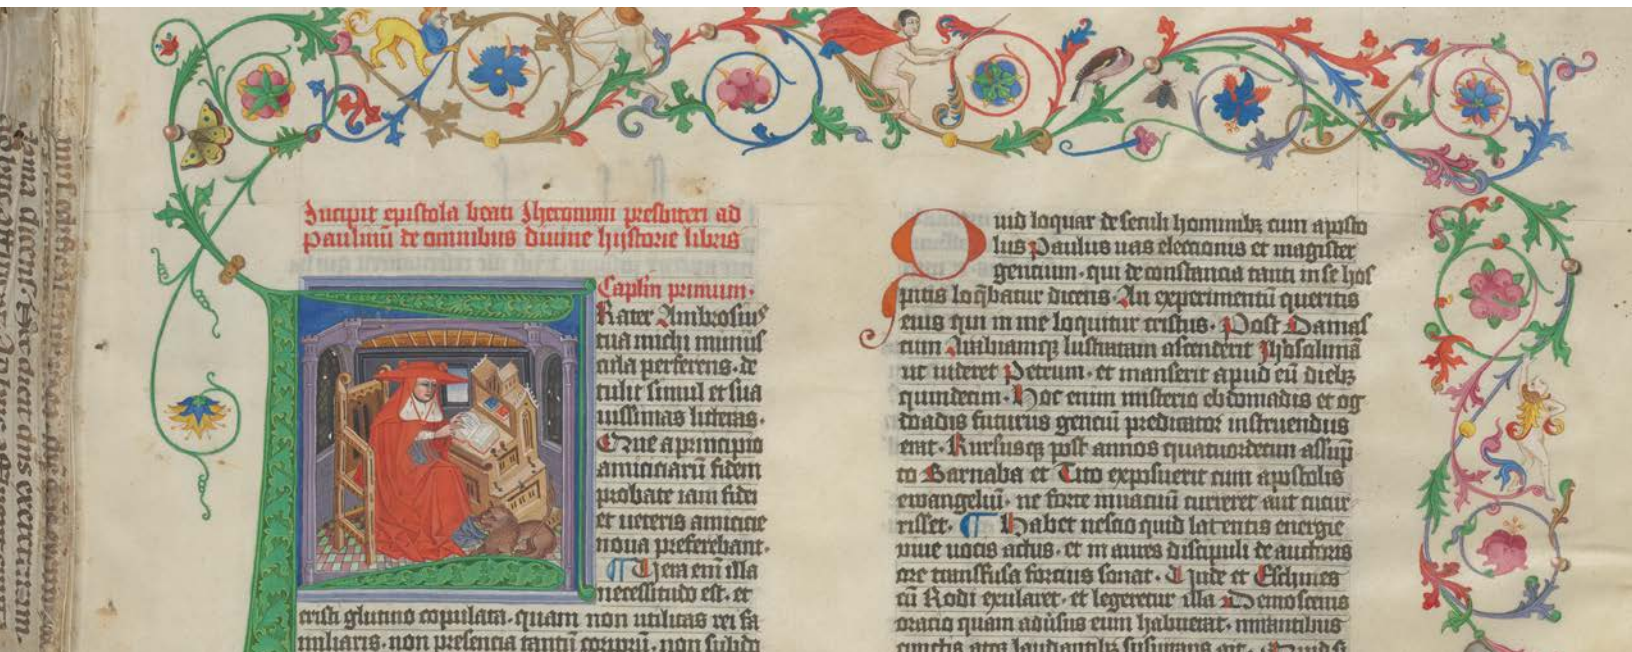 Incipit epistola beati Jheronimi presbiteri ad
paulinū de omnibus diuine hystorie libris
Caplm primum·
Rater Ambrosius
tua michi munus
cula perferens· de
tulit simul et sua
uissimas litteras·
Que a principio
amiciciarū fidem
probate iam fidei
et ueteris amicicie
noua preferebant·
Uera eni illa
necessitudo est· et
cristi glutino copulata· quam non utilitas rei fa
miliaris· non presencia tantū corporū· non subdo
Quid loquar de seculi hominibꝫ cum aposto
lus Paulus uas eleccionis et magister
gentium· qui de constancia tanti in se hos
pitis loq̄batur dicens· An experimentū queritis
eius qui in me loquitur cristus· Post Damas
cum Arabiamqꝫ lustratam ascenderit Jherosolimā
ut uideret Petrum· et manserit apud eū diebꝫ
quindecim· Hoc enim misterio ebdomadis et og
doadis futurus genciū predicator instruendus
erat· Rursusqꝫ post annos quatuordecim assūp
to Barnaba et Tito exposuerit cum apostolis
ewangeliū· ne forte in uacuū curreret aut cucur
risset· Habet nescio quid latentis energie
uiue uocis actus· et in aures discipuli de auctoris
ore transfusa forcius sonat· Unde et Eschines
cū Rodi exularet· et legeretur illa Demostenis
oracio quam aduersus eum habuerat· mirantibus
cunctis atqꝫ laudantibꝫ suspirans ait·